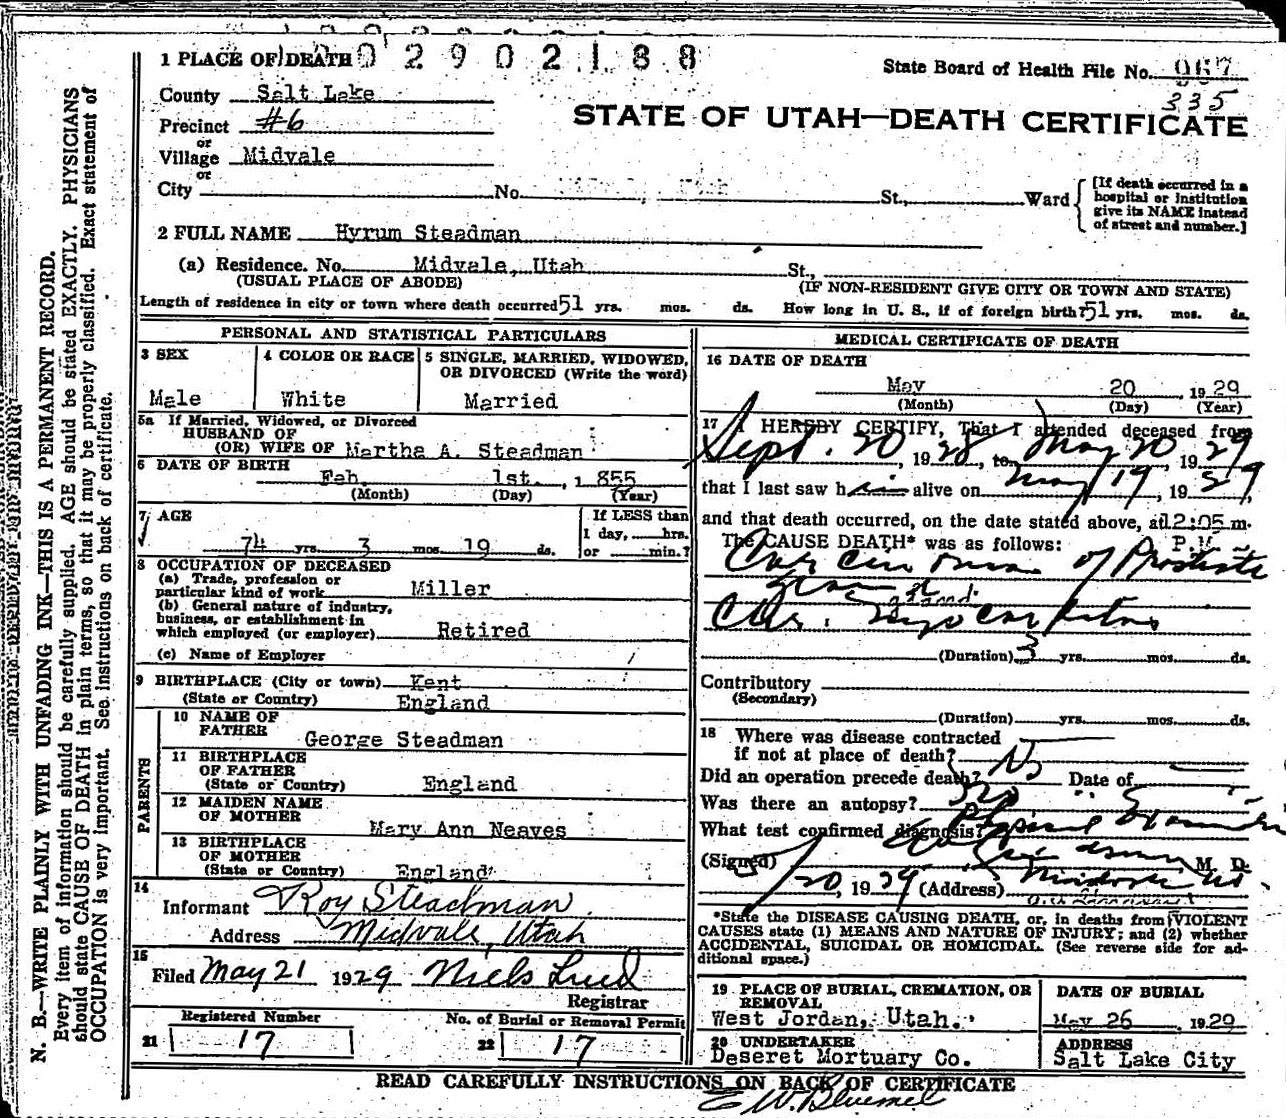 1 PLACE OF DEATH
002902188
State Board of Health File No. 967
335
County Salt Lake
STATE OF UTAH—DEATH CERTIFICATE
Precinct #6
or
Village Midvale
or
City No. St., Ward
[If death occurred in a
hospital or institution
give its NAME instead
of street and number.]
2 FULL NAME Hyrum Steadman
(a) Residence. No. Midvale, Utah St.,
(USUAL PLACE OF ABODE) (IF NON-RESIDENT GIVE CITY OR TOWN AND STATE)
Length of residence in city or town where death occurred 51 yrs. mos. ds. How long in U. S., if of foreign birth? 51 yrs. mos. ds.
PERSONAL AND STATISTICAL PARTICULARS
3 SEX
Male
4 COLOR OR RACE
White
5 SINGLE, MARRIED, WIDOWED,
OR DIVORCED (Write the word)
Married
5a If Married, Widowed, or Divorced
HUSBAND OF
(OR) WIFE OF Martha A. Steadman
6 DATE OF BIRTH
Feb. 1st. , 1 855
(Month) (Day) (Year)
7 AGE
74 yrs. 3 mos. 19 ds.
If LESS than
1 day, hrs.
or min.?
8 OCCUPATION OF DECEASED
(a) Trade, profession or
particular kind of work Miller
(b) General nature of industry,
business, or establishment in
which employed (or employer) Retired
(c) Name of Employer
9 BIRTHPLACE (City or town) Kent
(State or Country) England
PARENTS
10 NAME OF
FATHER
George Steadman
11 BIRTHPLACE
OF FATHER
(State or Country) England
12 MAIDEN NAME
OF MOTHER
Mary Ann Neaves
13 BIRTHPLACE
OF MOTHER
(State or Country) England
14
Informant Roy Steadman
Address Midvale, Utah
15
Filed May 21 1929 Niels Lind
Registrar
Registered Number
21 17
No. of Burial or Removal Permit
22 17
MEDICAL CERTIFICATE OF DEATH
16 DATE OF DEATH
May 20 , 19 29
(Month) (Day) (Year)
17 I HEREBY CERTIFY, That I attended deceased from
Sept. 20 , 19 28, to May 20 , 19 29
that I last saw him alive on May 19 , 19 29
and that death occurred, on the date stated above, at 12:05 m.
P.M.
The CAUSE DEATH* was as follows:
Carcinoma of Prostate
gland
Chr. Myocarditis
(Duration) 3 yrs. mos. ds.
Contributory
(Secondary)
(Duration) yrs. mos. ds.
18 Where was disease contracted
if not at place of death?
Did an operation precede death? No Date of
Was there an autopsy? no
What test confirmed diagnosis? Physical Examination
(Signed) M. D.
20, 19 29 (Address) Midvale Ut.
*State the DISEASE CAUSING DEATH, or, in deaths from VIOLENT
CAUSES state (1) MEANS AND NATURE OF INJURY; and (2) whether
ACCIDENTAL, SUICIDAL OR HOMICIDAL. (See reverse side for ad-
ditional space.)
19 PLACE OF BURIAL, CREMATION, OR
REMOVAL
West Jordan, Utah.
DATE OF BURIAL
May 26 , 19 29
20 UNDERTAKER
Deseret Mortuary Co.
ADDRESS
Salt Lake City
READ CAREFULLY INSTRUCTIONS ON BACK OF CERTIFICATE
E W. Bluemel
N. B.—WRITE PLAINLY WITH UNFADING INK—THIS IS A PERMANENT RECORD.
Every item of information should be carefully supplied. AGE should be stated EXACTLY. PHYSICIANS
should state CAUSE OF DEATH in plain terms, so that it may be properly classified. Exact statement of
OCCUPATION is very important. See instructions on back of certificate.